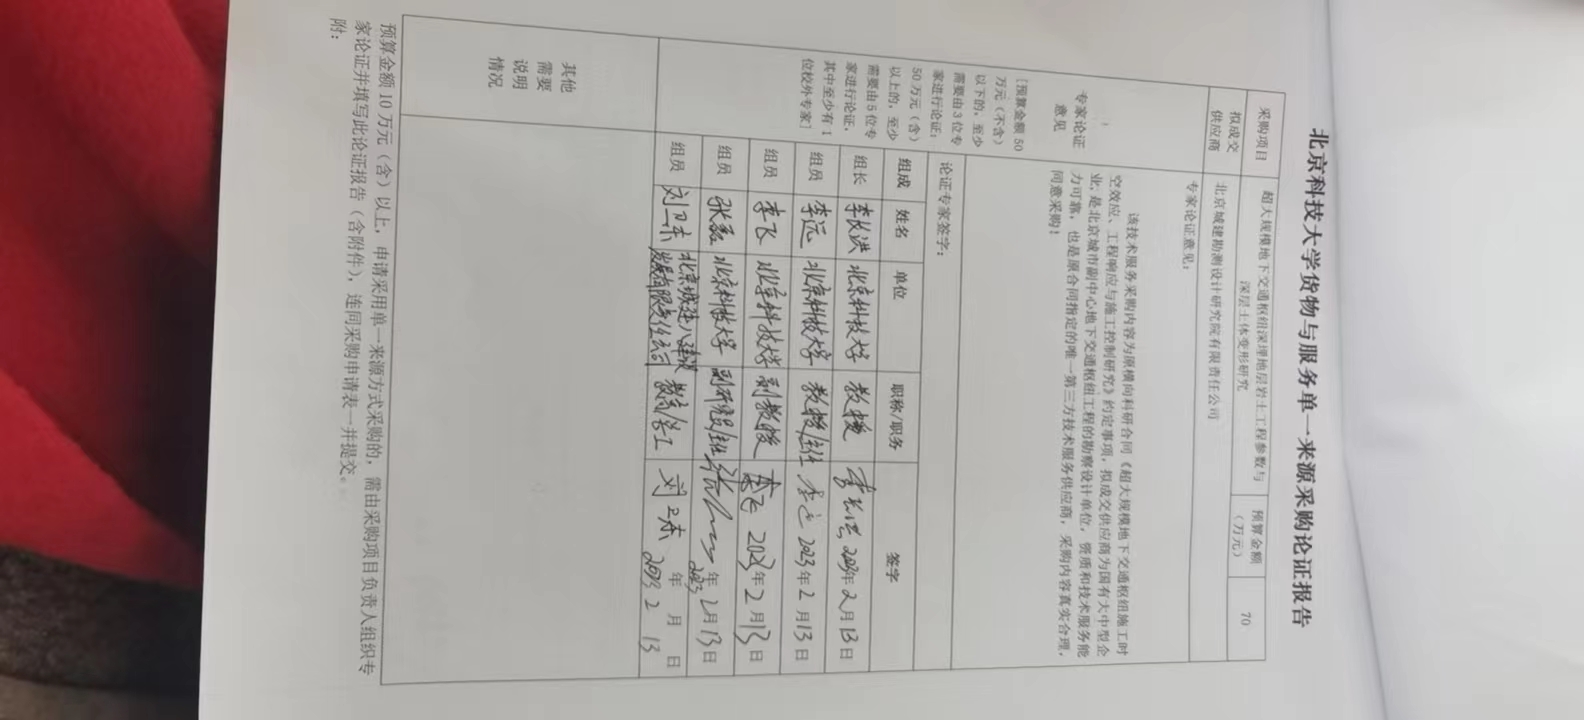 北京科技大学货物与服务单一来源采购论证报告
采购项目 超大规模地下交通枢纽深埋地层岩土工程参数与深层土体变形研究 预算金额（万元） 70
拟成交供应商 北京城建勘测设计研究院有限责任公司
专家论证意见
[预算金额 50
万元（不含）
以下的，至少
需要由 3 位专
家进行论证；
50 万元（含）
以上的，至少
需要由 5 位专
家进行论证，
其中至少有 1
位校外专家]
专家论证意见：
该技术服务采购内容为原横向科研合同《超大规模地下交通枢纽施工时
空效应、工程响应与施工控制研究》约定事项，拟成交供应商为国有大中型企
业，是北京城市副中心地下交通枢纽工程的勘察设计单位，资质和技术服务能
力可靠，也是原合同指定的唯一第三方技术服务供应商，采购内容真实合理，
同意采购！
论证专家签字：
组成 姓名 单位 职称/职务 签字
组长 李长洪 北京科技大学 教授 李长洪 2023年2月13日
组员 李远 北京科技大学 教授/主任 李远 2023年2月13日
组员 李飞 北京科技大学 副教授 李飞 2023年2月13日
组员 张磊 北京科技大学 副研究员/主任 2023年2月13日
组员 刘卫东 北京城建八建设发展有限责任公司 教高/总工 刘卫东 2023年2月13日
其他
需要
说明
情况
预算金额 10 万元（含）以上，申请采用单一来源方式采购的，需由采购项目负责人组织专
家论证并填写此论证报告（含附件），连同采购申请表一并提交。
附：